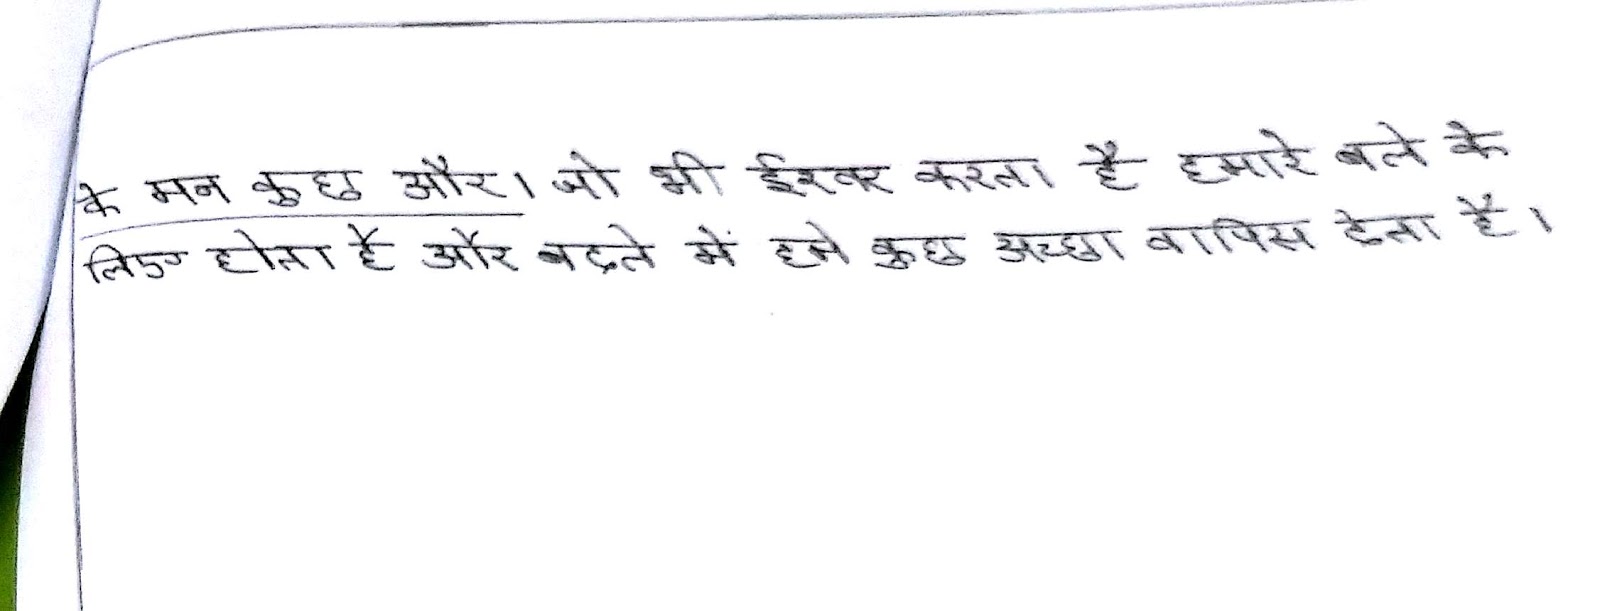 के मन कुछ और। जो भी ईश्वर करता है हमारे बले के
लिए होता है और बदले में हमे कुछ अच्छा वापिस देता है।